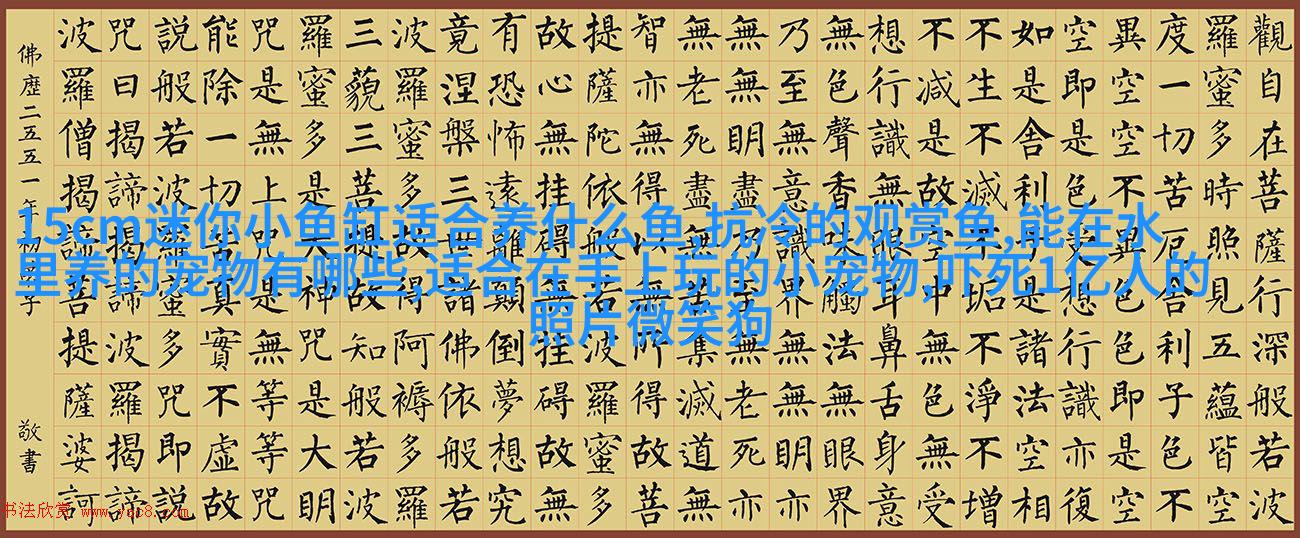 15cm迷你小鱼缸适合养什么鱼,抗冷的观赏鱼,能在水
里养的宠物有哪些,适合在手上玩的小宠物,吓死1亿人的
照片微笑狗
觀自在菩薩行深般若波
羅蜜多時照見五蘊皆空
度一切苦厄舍利子色不
異空空不異色色即是空
空即是色受想行識亦復
如是舍利子是諸法空相
不生不滅不垢不淨不增
不減是故空中無色無受
想行識無眼耳鼻舌身意
無色聲香味觸法無眼界
乃至無意識界無無明亦
無無明盡乃至無老死亦
無老死盡無苦集滅道無
智亦無得以無所得故菩
提薩陀依般若波羅蜜多
故心無挂碍無挂碍故無
有恐怖遠離顛倒夢想究
竟涅槃三世諸佛依般若
波羅蜜多故得阿褥多羅
三藐三菩提故知般若波
羅蜜多是大神咒是大明
咒是無上咒是無等等咒
能除一切苦真實不虛故
説般若波羅蜜多咒即説
咒曰揭諦揭諦波羅揭諦
波羅僧揭諦菩提薩婆訶
佛歷二五五一年
敬書
书法欣赏 www.yac8.com